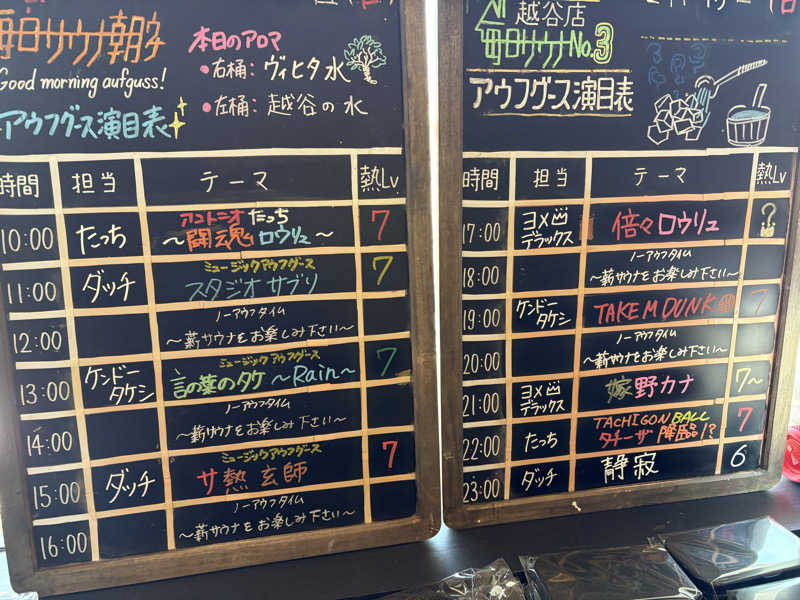 毎日サウナ朝刊
Good morning aufguss!
アウフグース演目表
本日のアロマ
・右桶: ヴィヒタ水
・左桶: 越谷の水
時間 担当 テーマ 熱Lv
10:00 たっち アントニオたっち 7
〜闘魂ロウリュ〜
11:00 ダッチ ミュージックアウフグース 7
スタジオサブリ
12:00 ノーアウフタイム
〜薪サウナをお楽しみ下さい〜
13:00 ケンドータケシ ミュージックアウフグース 7
言の葉のタケ〜Rain〜
14:00 ノーアウフタイム
〜薪サウナをお楽しみ下さい〜
15:00 ダッチ ミュージックアウフグース 7
サ熱玄師
16:00 ノーアウフタイム
〜薪サウナをお楽しみ下さい〜
越谷店
毎日サウナNo.3
アウフグース演目表
時間 担当 テーマ 熱Lv
17:00 ヨメ凶デラックス 倍々ロウリュ ?
18:00 ノーアウフタイム
〜薪サウナをお楽しみ下さい〜
19:00 ケンドータケシ TAKEM DUNK 7
20:00 ノーアウフタイム
〜薪サウナをお楽しみ下さい〜
21:00 ヨメ凶デラックス 嫁野カナ 7〜
22:00 たっち TACHIGON BALL 7
タチーザ降臨!?
23:00 ダッチ 静寂 6